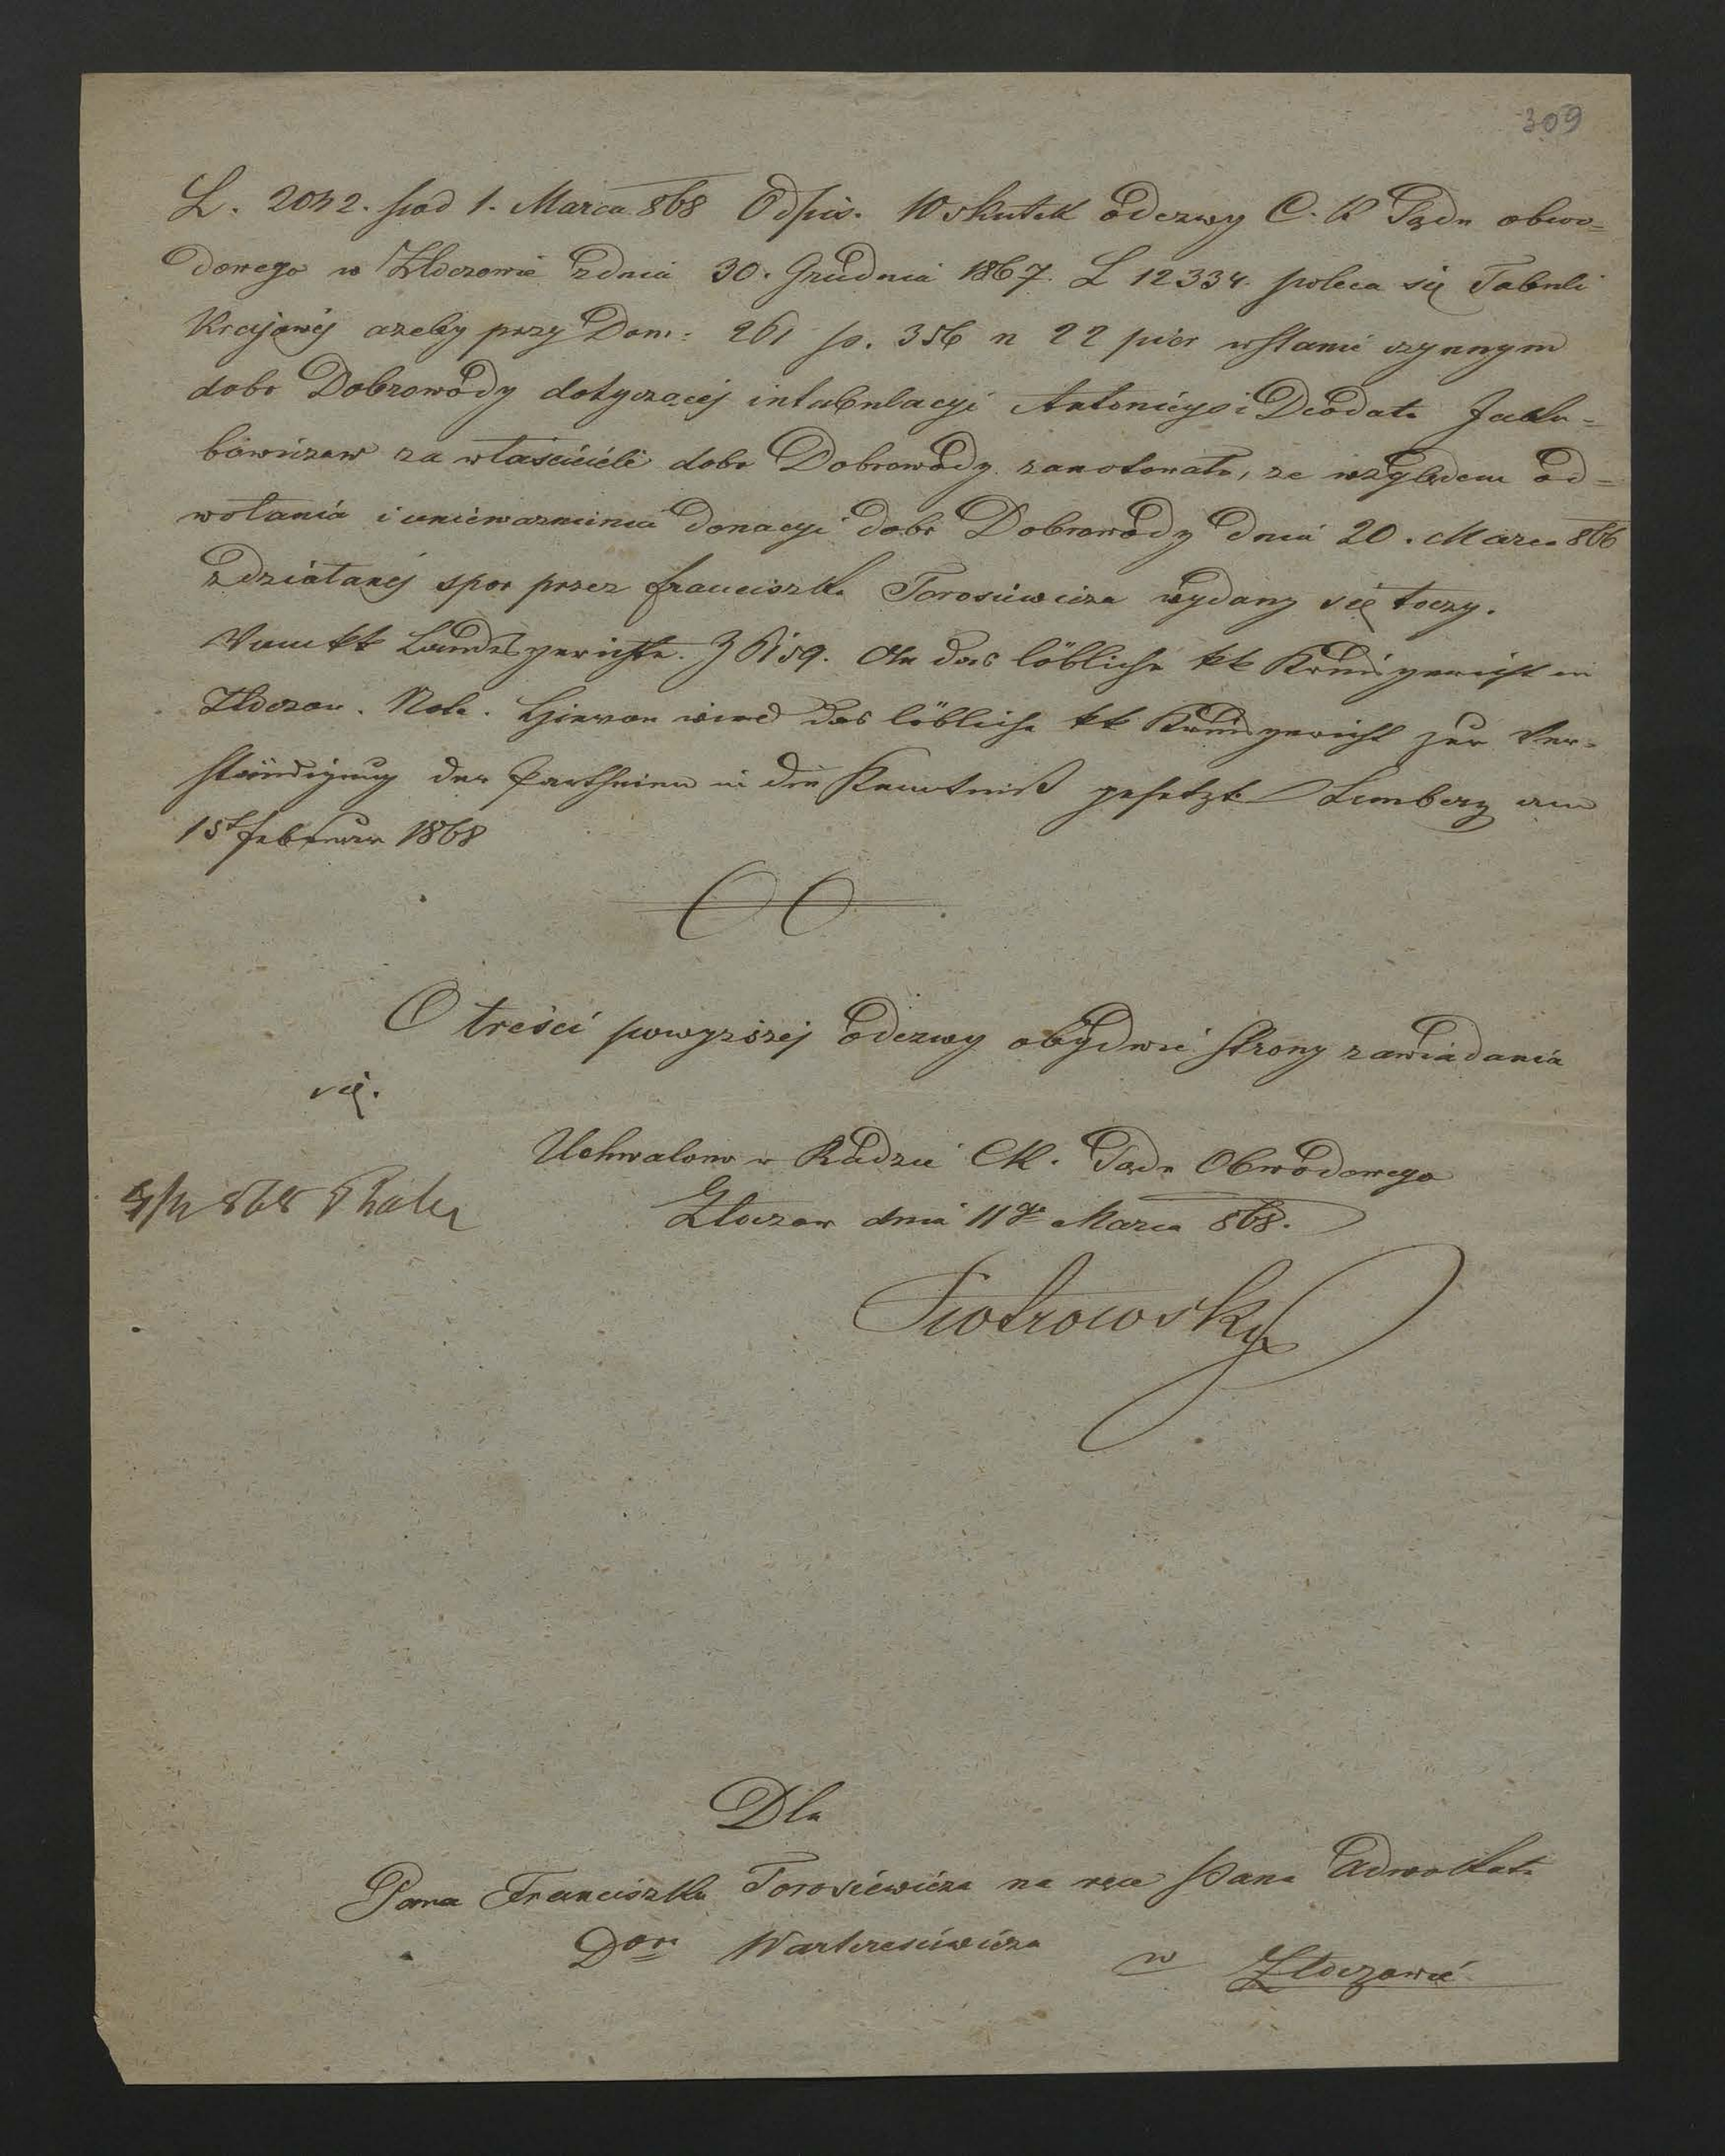 309
L. 2042. prod 1. Marca 868 Odpis. Wskutek odezwy C. K Sądu obwo=
dowego w Złoczowie zdnia 30. Grudnia 1867. L 12334. poleca się Tabuli
Krajowej azeby przy Dom: 261 p. 356 n 22 wstanie czynnym
dobr Dobrowody dotyczącej intabulacyi Antoniego i Deodata Jaku=
bowiczow za właścicieli dobr Dobrowody zanotowała, ze względem od=
wołania i unieważnienia donacyi dobr Dobrowody dnia 20. Marca 866
zdziałanej spor przez Franciszka Torosiewicza wydany się toczy.
Vom kk Landesgerichte. Z 6159. An das löbliche kk Kreisgericht in
Złoczow. Note. Hievon wird das löbliche kk Kreisgericht zur Ver=
ständigung der Partheien in die Kenntniß gesetzt Lemberg am
15t Februar 1868
O treści powyższej odezwy obydwie strony zawiadamia
się.
Uchwalono w Radzie CK. Sądu Obwodowego
Złoczow dnia 11go Marca 868.
Piotrowsky
Dla
Pana Franciszka Torosiewicza na ręce Pana Adwokata
Dora Warteresiewicza w Złoczowie